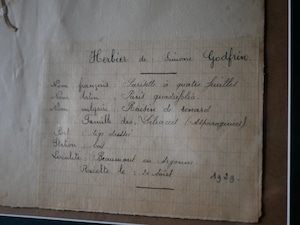 Herbier de Simone Godfrin.
Nom français : Parisette à quatre feuilles
Nom latin : Paris quadrifolia
Nom vulgaire : Raisin de renard
Famille des Liliacées (Asparaginées)
Port : tige dressée
Station : bois
Localité : Beaumont en Argonne
Récolté le : 20 Août 1929